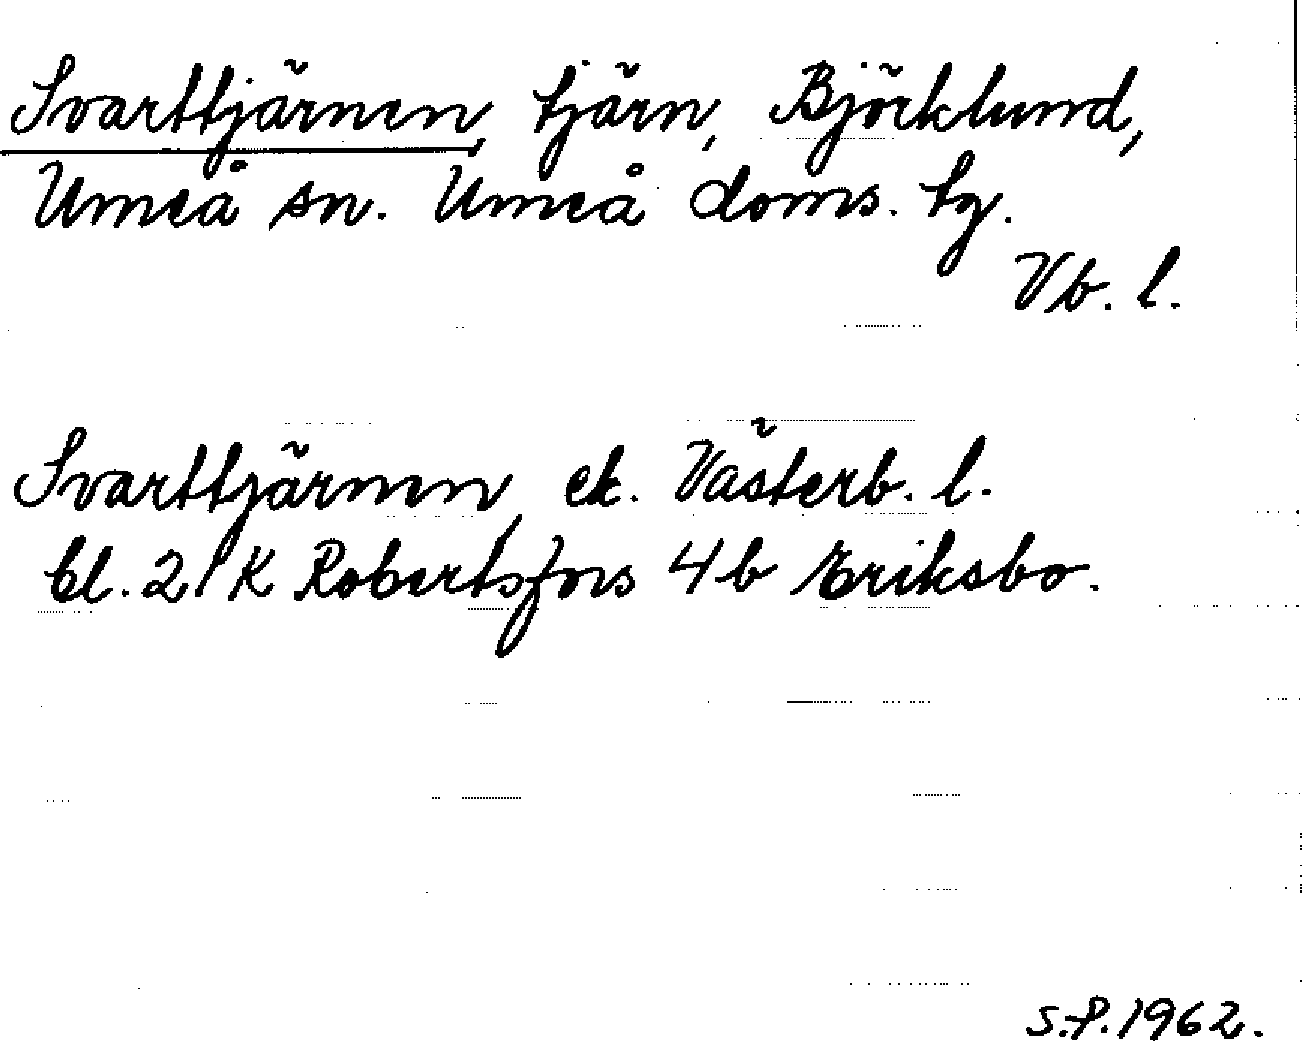 Svarttjärnen, tjärn, Björklund,
Umeå sn. Umeå doms. tg.
Vb. l.
Svarttjärnen, ek. Västerb. l.
bl. 21 K Robertsfors 4b Eriksbo.
S.P. 1962.